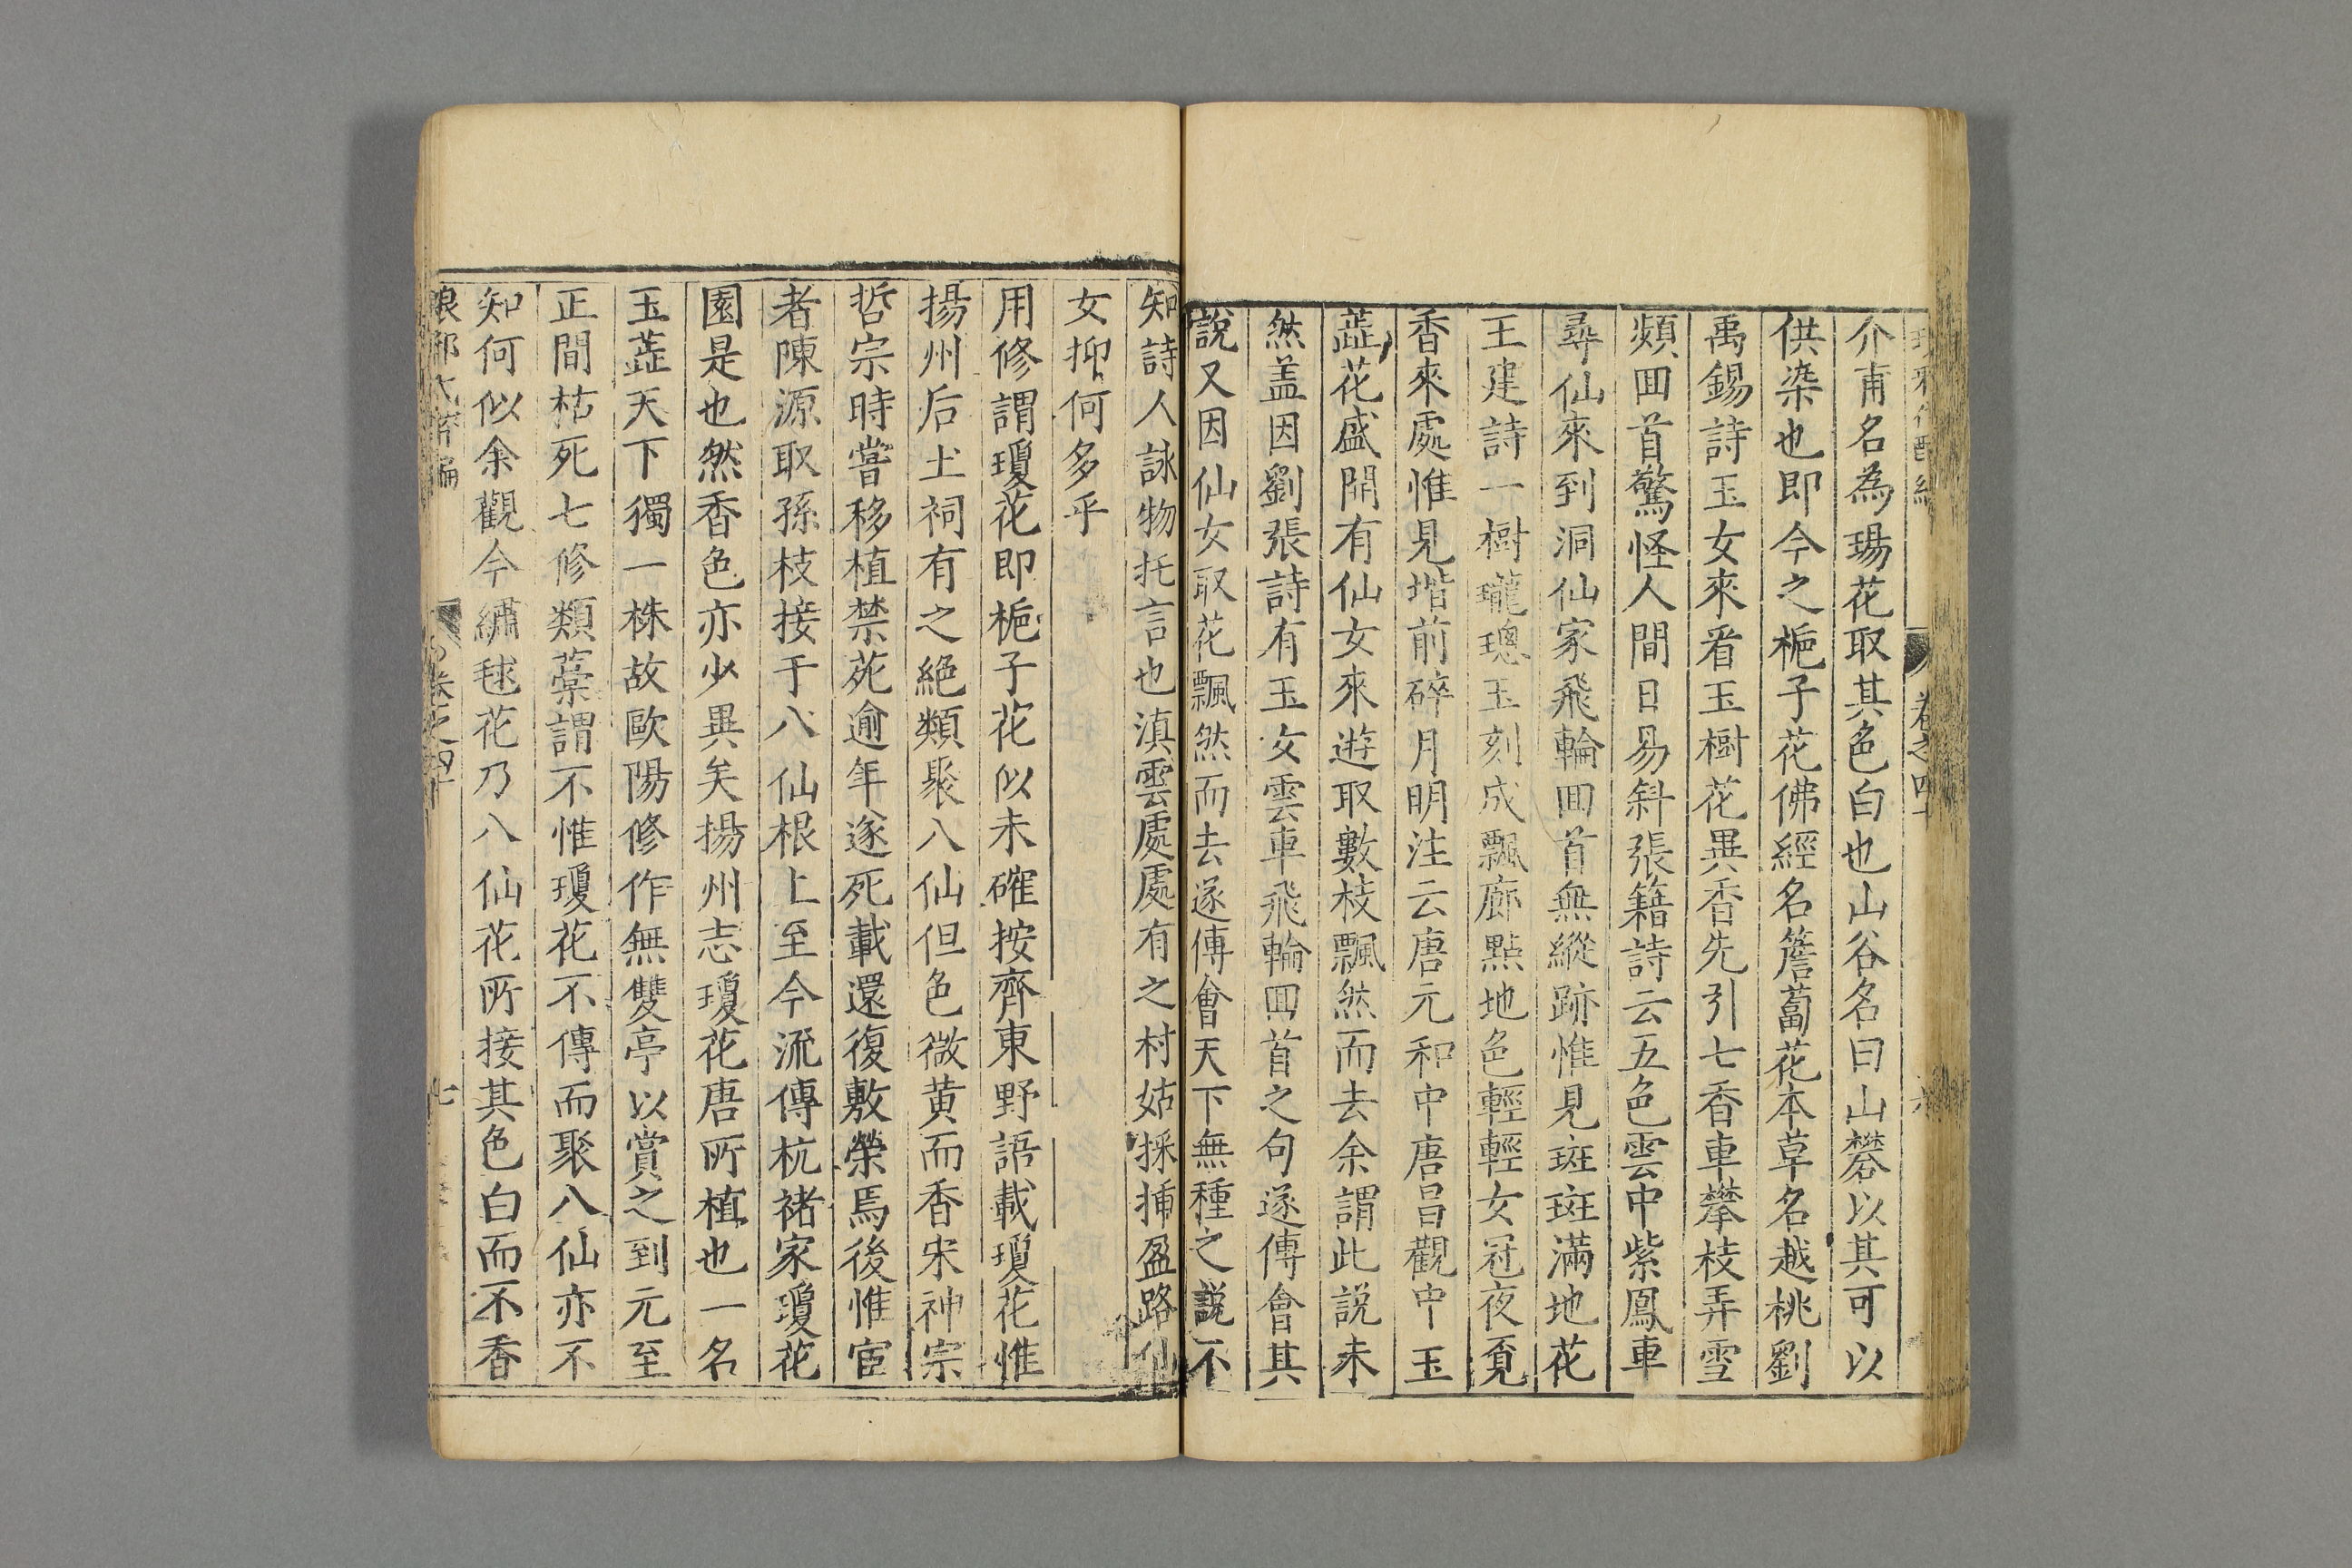 卷之四十
介甫名為瑒花取其色白也山谷名曰山礬以其可以
供染也即今之梔子花佛經名簷蔔花本草名越桃劉
禹錫詩玉女來看玉樹花異香先引七香車攀枝弄雪
頻回首驚怪人間日易斜張籍詩云五色雲中紫鳳車
尋仙來到洞仙家飛輪回首無縱跡惟見斑斑滿地花
王建詩一樹瓏璁玉刻成飄廊點地色輕輕女冠夜覓
香來處惟見堦前碎月明注云唐元和中唐昌觀中玉
蕋花盛開有仙女來遊取數枝飄然而去余謂此說未
然盖因劉張詩有玉女雲車飛輪回首之句遂傳會其
說又因仙女取花飄然而去遂傳會天下無種之說不
知詩人詠物托言也滇雲處處有之村姑採揷盈路仙
女抑何多乎
用修謂瓊花即梔子花似未確按齊東野語載瓊花惟
揚州后土祠有之絕類聚八仙但色微黄而香宋神宗
哲宗時嘗移植禁苑逾年遂死載還復敷榮焉後惟宦
者陳源取孫枝接于八仙根上至今流傳杭褚家瓊花
園是也然香色亦少異矣揚州志瓊花唐所植也一名
玉蕋天下獨一株故歐陽修作無雙亭以賞之到元至
正間枯死七修類藁謂不惟瓊花不傳而聚八仙亦不
知何似余觀今繡毬花乃八仙花所接其色白而不香
卷之四十
七